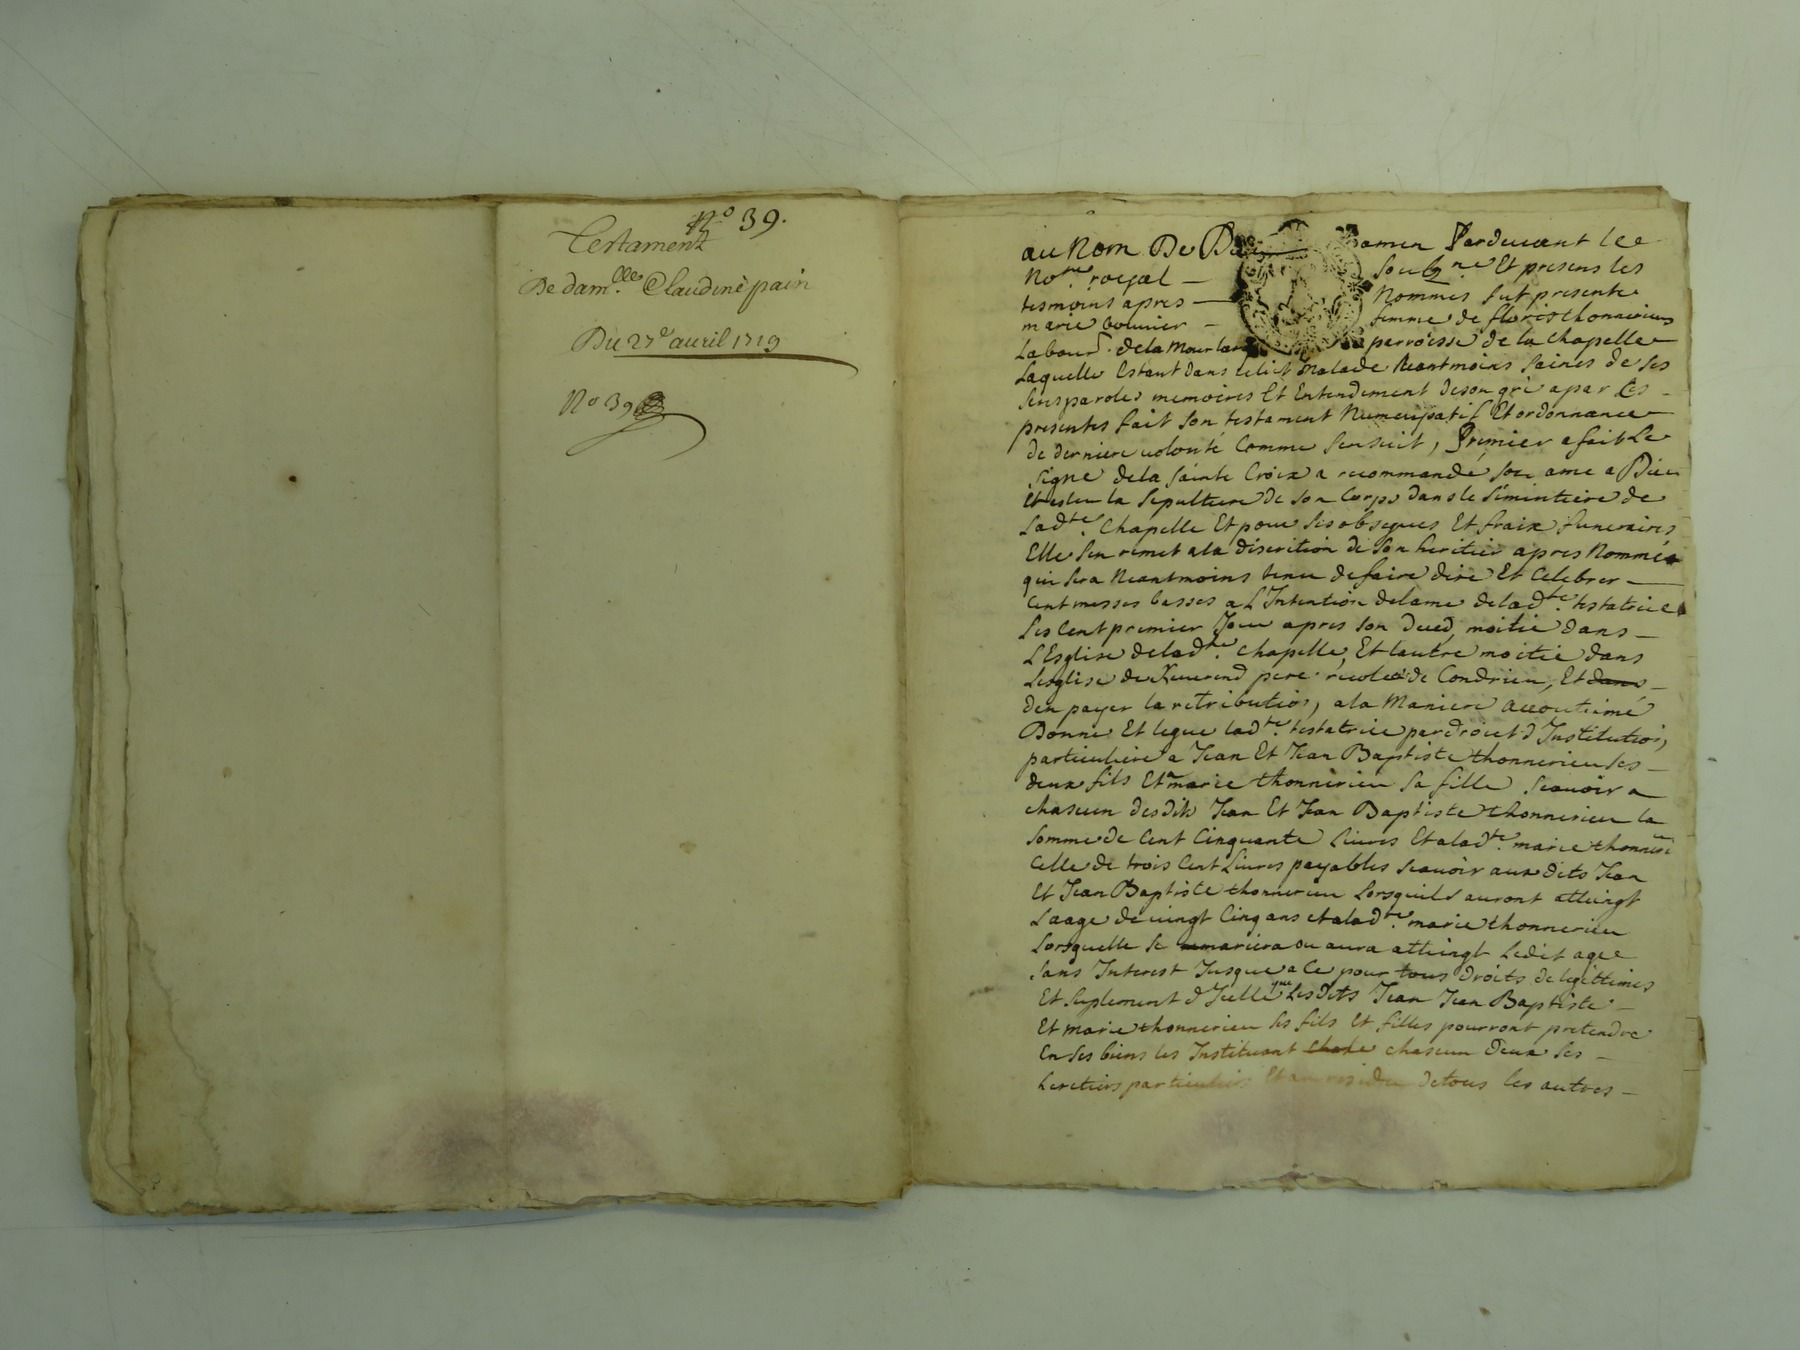 No 39.
Testament
De dam.lle Claudine pain
Du 27e auril 1719
No 39
au Nom De Dieu amen Parduuant lee
No.re royal soubg.ne Et presens les
tesmoins apres Nommes fut presente
marie bonnier femme de floris thonnerieus
Labour.r de la parroisse de la Chapelle
Laquelle Estant dans malade Neantmoins saines de ses
sens paroles memoires Et Entendement de son gre a par Les
presentes fait son testament Nuncupatif Et ordonnance
de derniere uolonté Comme sensuit, Premier a fait Le
signe de la sainte Croix a recommandé son ame a Dieu
Et esleu la sepulture de son Corps dans le Simintiere de
Lad.te Chapelle Et pour ses obseques Et fraix funeraires
Elle sen remet a la discrition de son heritier apres Nommé
qui sera Neantmoins tenu de faire dire Et Celebrer
Cent messes basses a L'Intention de lame de lad.te testatrice
Les Cent premier Jour apres son deced, moitie dans
L'Esglise de lad.te Chapelle, Et lautre moitie dans
Lesglise de Reuerend pere recolé de Condrieu, Et dans
den payer la retribution, a la Maniere accoutumé
Donne Et legue lad.te testatrice par droict d'Institution,
particuliere a Jean Et Jean Baptiste thonnerieu ses
deux fils Et a marie thonnerieu sa fille scauoir a
chascun desdits Jean Et Jean Baptiste thonnerieu la
somme de Cent Cinquante Liures Et a lad.te marie thonnerieu
Celle de trois Cent Liures payables scauoir aux dits Jean
Et Jean Baptiste thonnerieu Lorsquils auront atteingt
Laage de uingt Cinq ans et a lad.te marie thonnerieu
Lorsquelle se mariera ou aura atteingt Ledit agee
sans Interest Jusque a Ce pour tous droits de legittimes
Et suplement d'Jcelle que Lesdits Jean Jean Baptiste
Et marie thonnerieu ses fils Et filles pourront pretendre
En ses biens les Instituant chascun d'eux ses
heretiers particuliers Et au residu de tous les autres